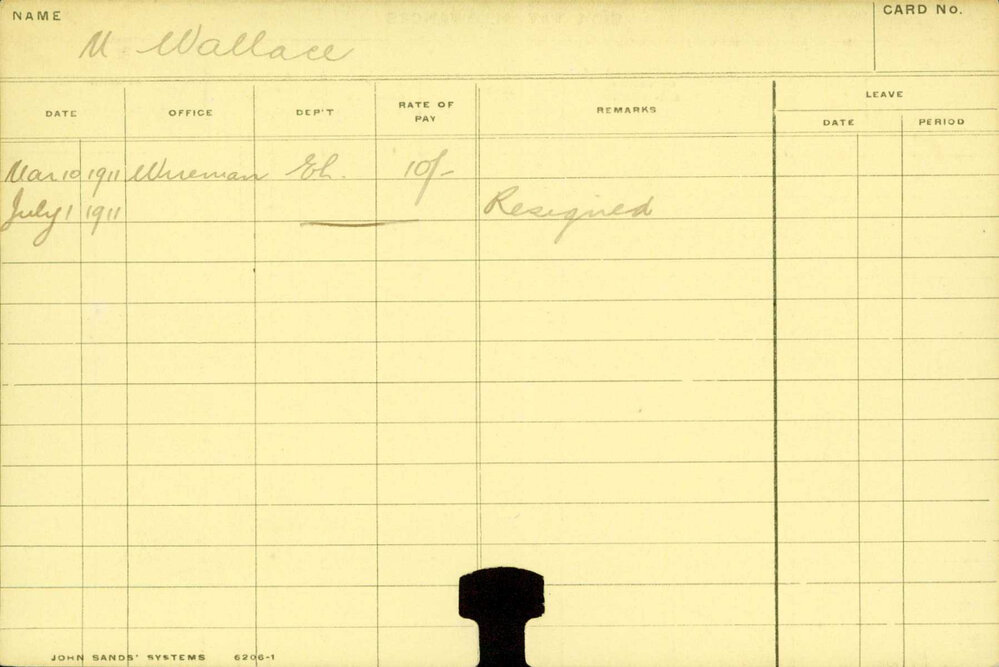 NAME
CARD No.
M Wallace
DATE OFFICE DEP'T RATE OF PAY REMARKS LEAVE
DATE PERIOD
Mar 10 1911 Wireman 10/-
July 1 1911 Resigned
JOHN SANDS' SYSTEMS 6206-1